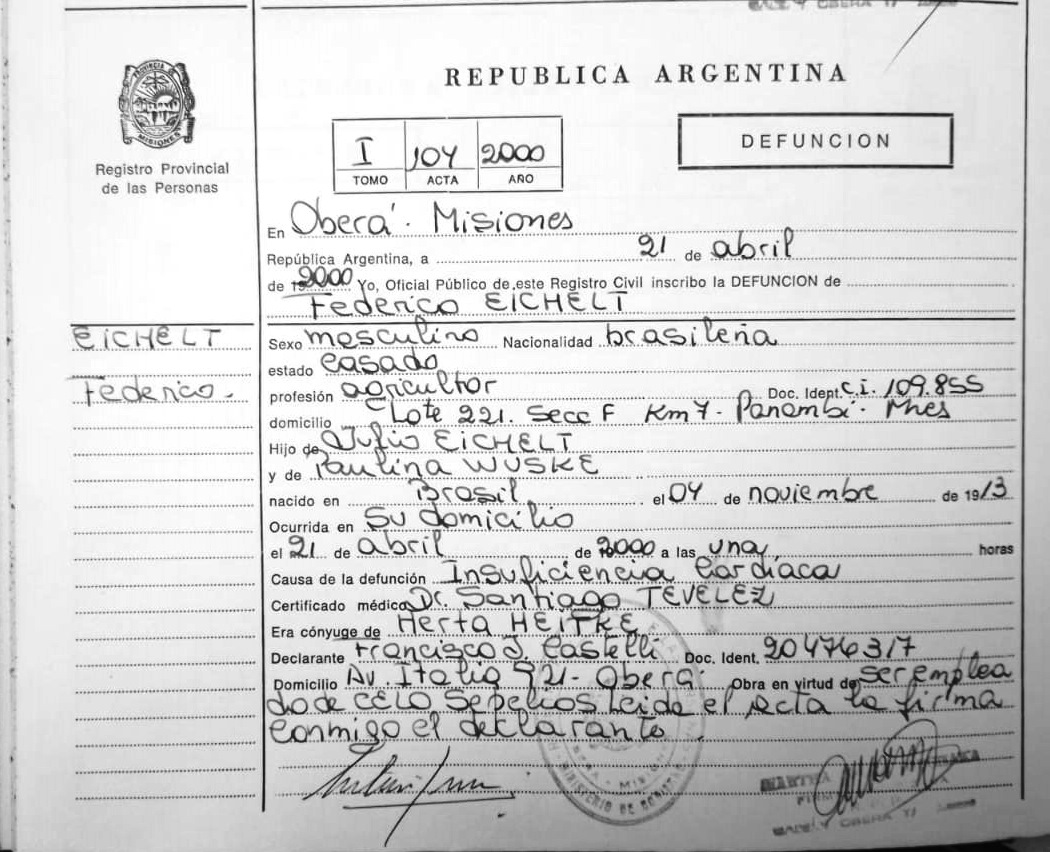 REPUBLICA ARGENTINA
PROVINCIA
MISIONES
Registro Provincial
de las Personas
DEFUNCION
I 104 2000
TOMO ACTA AÑO
En Oberá. Misiones
República Argentina, a 21 de abril
de 2000 Yo, Oficial Público de este Registro Civil inscribo la DEFUNCION de
Federico EICHELT
EICHELT
Federico.
Sexo masculino Nacionalidad brasileña
estado casado
profesión agricultor Doc. Ident. C.i. 109.855
domicilio Lote 221. Secc F Km 7. Panambí. Mnes
Hijo de Julio EICHELT
y de Paulina WUSKE
nacido en Brasil el 04 de noviembre de 1913
Ocurrida en Su domicilio
el 21 de abril de 2000 a las una horas
Causa de la defunción Insuficiencia Cardíaca
Certificado médico Dr. Santiago TEVELEZ
Era cónyuge de Herta HEITKE
Declarante Francisco J. Castelli Doc. Ident. 20476317
Domicilio Av. Italia 921- Oberá. Obra en virtud de ser emplea
do de CELO Sepelios Leída el Acta la firma
conmigo el declarante
MINISTERIO DE